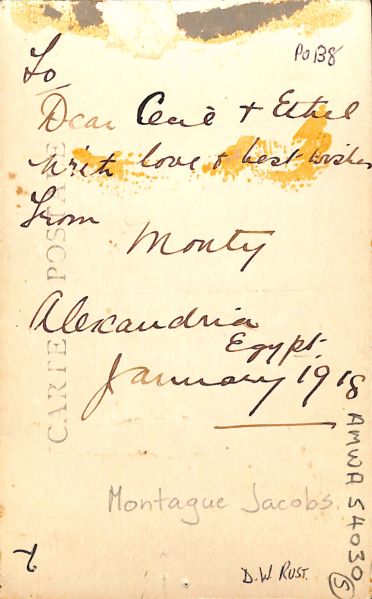 PO138
To
Dear Cecil + Ethel
With love & best wishes
From
Monty
Alexandria
Egypt.
January 1918
CARTE POSTALE
Montague Jacobs.
AMWA 54030
5
D.W RUST.